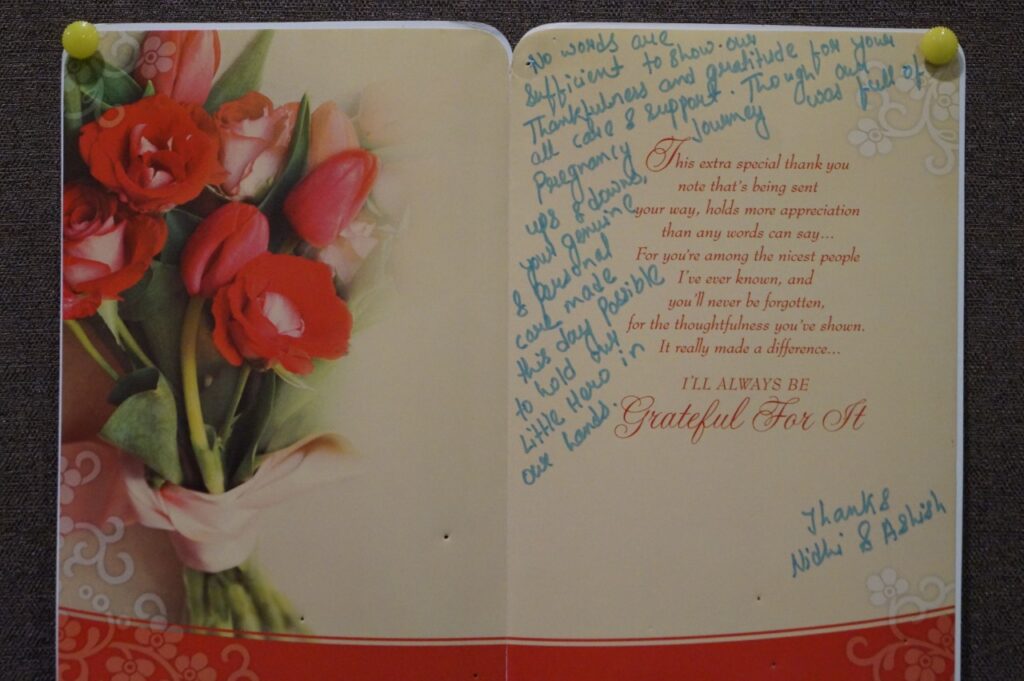 No words are
sufficient to show our
Thankfulness and gratitude for your
all care & support. Thought our
Peregnancy Journey was full of
ups & downs,
your genuine
& personal
care made
this day possible
to hold our
Little Hero in
our hands.
This extra special thank you
note that's being sent
your way, holds more appreciation
than any words can say...
For you're among the nicest people
I've ever known, and
you'll never be forgotten,
for the thoughtfulness you've shown.
It really made a difference...
I'LL ALWAYS BE
Grateful For It
Thanks
Nidhi & Ashish